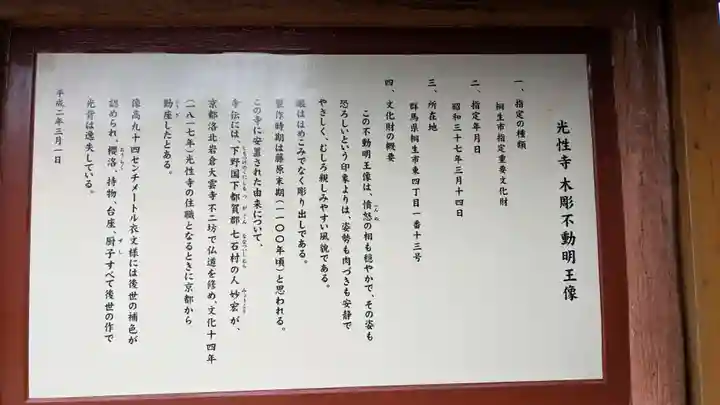 光性寺 木彫不動明王像
一、指定の種類
桐生市指定重要文化財
二、指定年月日
昭和三十七年三月十四日
三、所在地
群馬県桐生市東四丁目一番十三号
四、文化財の概要
この不動明王像は、憤怒の相も穏やかで、その姿も
恐ろしいという印象よりは、姿勢も肉づきも安静で
やさしく、むしろ親しみやすい風貌である。
眼ははめこみでなく彫り出しである。
製作時期は藤原末期(一一〇〇年頃)と思われる。
この寺に安置された由来について、
寺伝には、下野国下都賀郡七石村の人妙宏が、
京都洛北岩倉大雲寺不二坊で仏道を修め、文化十四年
(一八一七年)光性寺の住職となるときに京都から
勧座したとある。
像高九十四センチメートル衣文様には後世の補色が
認められ、櫻洛、持物、台座、厨子すべて後世の作で
光背は逸失している。
平成二年三月一日